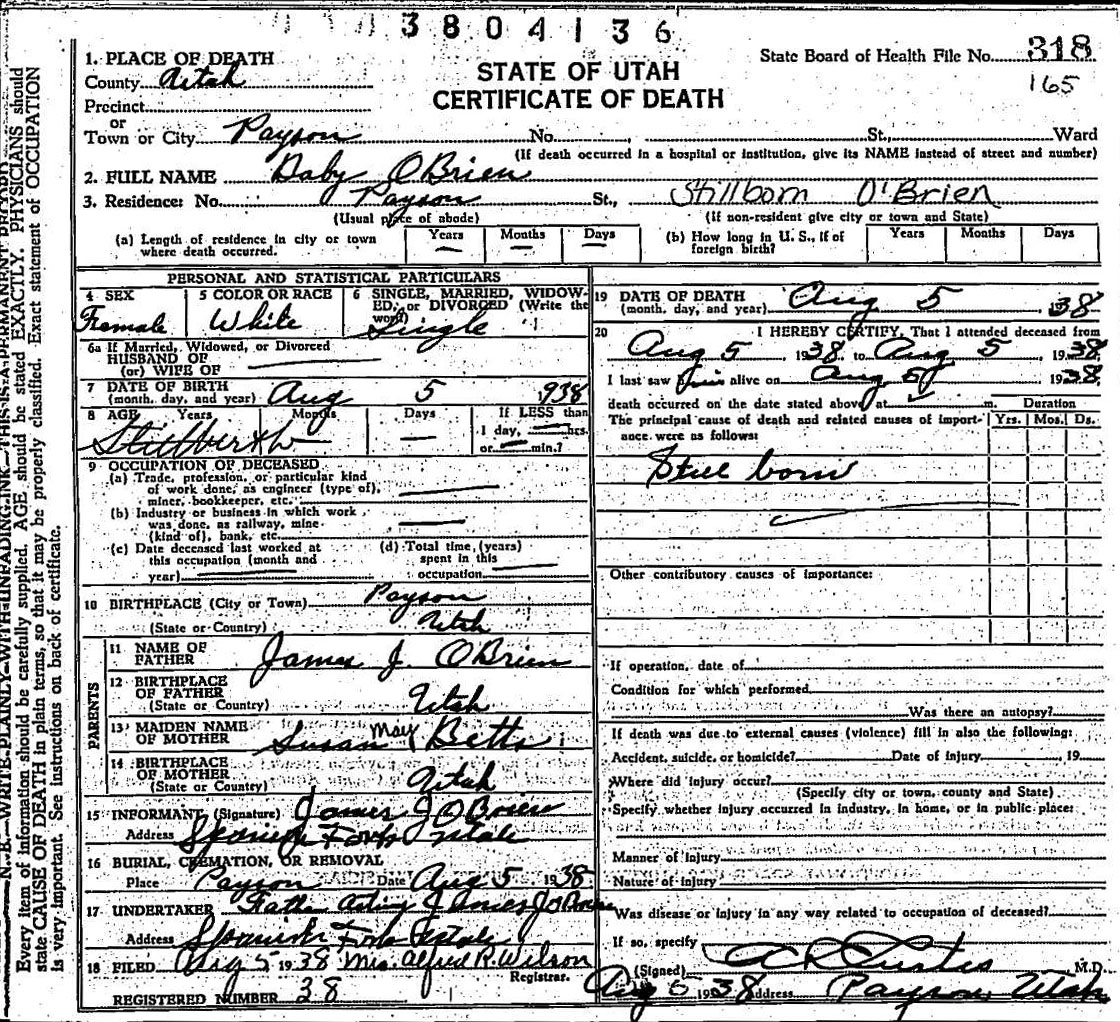 3804136
1. PLACE OF DEATH
County Utah
Precinct
or
Town or City Payson No. St., Ward
STATE OF UTAH
CERTIFICATE OF DEATH
State Board of Health File No. 318
165
(If death occurred in a hospital or institution, give its NAME instead of street and number)
2. FULL NAME Baby OBrien
3. Residence: No. Payson St., Stillborn O'Brien
(Usual place of abode) (If non-resident give city or town and State)
(a) Length of residence in city or town where death occurred. Years — Months — Days —
(b) How long in U. S., if of foreign birth? Years Months Days
PERSONAL AND STATISTICAL PARTICULARS
4 SEX Female
5 COLOR OR RACE White
6 SINGLE, MARRIED, WIDOWED, or DIVORCED (Write the word) Single
6a If Married, Widowed, or Divorced
HUSBAND OF
(or) WIFE OF
7 DATE OF BIRTH
(month, day, and year) Aug 5 1938
8 AGE Years Months Days If LESS than
1 day, hrs.
or min.?
Stillbirth — —
9 OCCUPATION OF DECEASED
(a) Trade, profession, or particular kind
of work done, as engineer (type of),
miner, bookkeeper, etc.
(b) Industry or business in which work
was done, as railway, mine
(kind of), bank, etc.
(c) Date deceased last worked at
this occupation (month and
year)
(d) Total time (years)
spent in this
occupation
10 BIRTHPLACE (City or Town) Payson
(State or Country) Utah
PARENTS
11 NAME OF
FATHER James J. OBrien
12 BIRTHPLACE
OF FATHER Utah
(State or Country)
13 MAIDEN NAME
OF MOTHER Susan May Betts
14 BIRTHPLACE
OF MOTHER Utah
(State or Country)
15 INFORMANT (Signature) James J OBrien
Address Spanish Fork Utah
16 BURIAL, CREMATION, OR REMOVAL
Place Payson Date Aug 5 1938
17 UNDERTAKER Father Acting James J OBrien
Address Spanish Fork Utah
18 FILED Aug 5 1938 Mrs. Alfred R. Wilson
Registrar.
REGISTERED NUMBER 38
19 DATE OF DEATH
(month, day, and year) Aug 5 38
20 I HEREBY CERTIFY, That I attended deceased from
Aug 5, 1938, to Aug 5, 1938
I last saw alive on Aug 1938
death occurred on the date stated above, at m. Duration
The principal cause of death and related causes of importance were as follows: Yrs. Mos. Ds.
Still born
Other contributory causes of importance:
If operation, date of
Condition for which performed
Was there an autopsy?
If death was due to external causes (violence) fill in also the following:
Accident, suicide, or homicide? Date of injury , 19
Where did injury occur?
(Specify city or town, county and State)
Specify whether injury occurred in industry, in home, or in public place:
Manner of injury
Nature of injury
Was disease or injury in any way related to occupation of deceased?
If so, specify
(Signed) M.D.
Aug 1938 Address Payson, Utah
N. B.—WRITE PLAINLY WITH UNFADING INK—THIS IS A PERMANENT RECORD
Every item of information should be carefully supplied. AGE should be stated EXACTLY. PHYSICIANS should
state CAUSE OF DEATH in plain terms, so that it may be properly classified. Exact statement of OCCUPATION
is very important. See instructions on back of certificate.